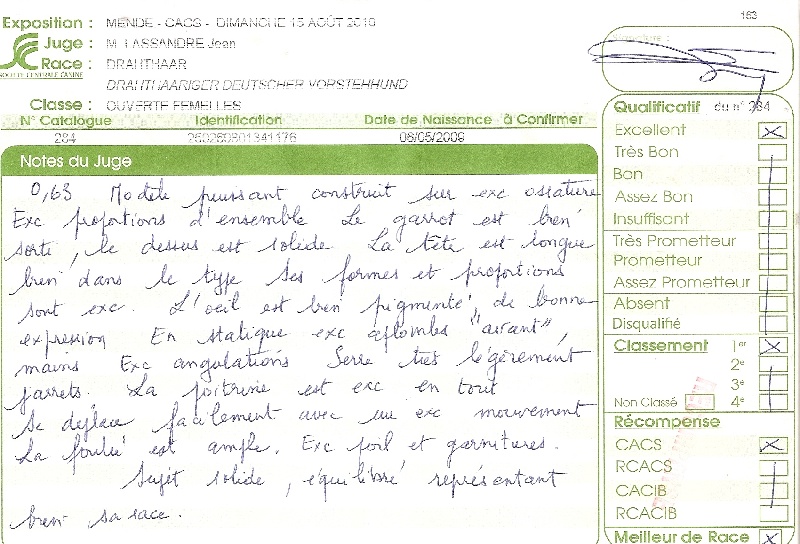 163
Exposition : MENDE - CACS - DIMANCHE 15 AOÛT 2010
Juge : M. LASSANDRE Jean
Race : DRAHTHAAR
SOCIÉTÉ CENTRALE CANINE
DRAHTHAARIGER DEUTSCHER VORSTEHHUND
Classe : OUVERTE FEMELLES
N° Catalogue Identification Date de Naissance à Confirmer
284 06/05/2009
Notes du Juge
0,63 Modèle puissant construit sur exc ossature
Exc proportions d'ensemble Le garrot est bien
sorti, le dessus est solide La tête est longue
bien dans le type Ses formes et proportions
sont exc. L'oeil est bien pigmenté, de bonne
expression En statique exc aplombs "avant",
mains Exc angulations Serre très légèrement
jarrets. La poitrine est exc en tout
Se déplace facilement avec un exc mouvement
La foulée est ample. Exc poil et garnitures.
Sujet solide, équilibré représentant
bien sa race.
Signature :
Qualificatif du n° 284
Excellent
Très Bon
Bon
Assez Bon
Insuffisant
Très Prometteur
Prometteur
Assez Prometteur
Absent
Disqualifié
Classement 1er
2e
3e
Non Classé 4e
Récompense
CACS
RCACS
CACIB
RCACIB
Meilleur de Race